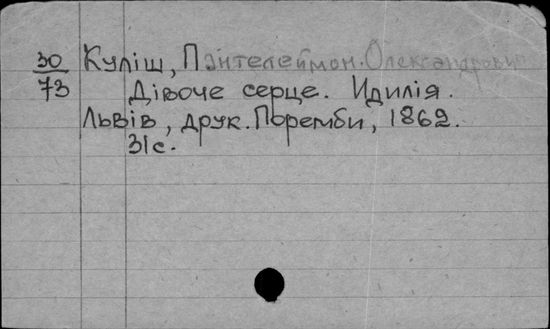 30 Куліш, Пантелеймон. Олександрович
73 Дівоче серце. Идилія.
Львів, друк. Поремби, 1862.
31с.